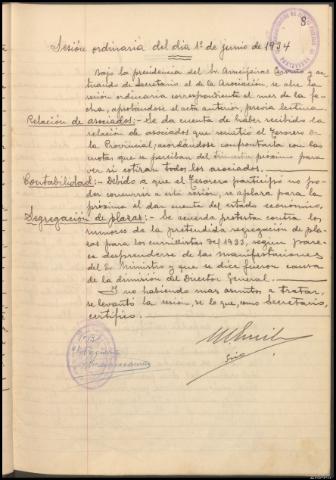 8
Sesión ordinaria del dia 1º de junio de 1934
Bajo la presidencia del Sr. Armeifeiras y ac-
tuando de Secretario el de la Asociación, se abre la se-
sión ordinaria correspondiente al mes de la fe-
cha, aprobándose el acta anterior, previa lectura.
Relación de asociados:- Se da cuenta de haber recibido la
relación de asociados que remitió el Tesorero de
la Provincial, acordándose confrontarla con las
cuotas que se perciban del trimestre próximo para
ver si cotizan todos los asociados.
Contabilidad:- Debido a que el Tesorero participó no po-
der concurrir a esta sesión, se aplaza para la
próxima el dar cuenta del estado económico.
Segregación de plazas:- Se acuerda protestar contra los
rumores de la pretendida segregación de pla-
zas para los cursillistas del 1933, según parece
desprenderse de las manifestaciones
del Sr. Ministro y que se dice fueron causa
de la dimisión del Director General.
Y no habiendo mas asuntos a tratar,
se levantó la sesión, de lo que, como Secretario,
certifico.